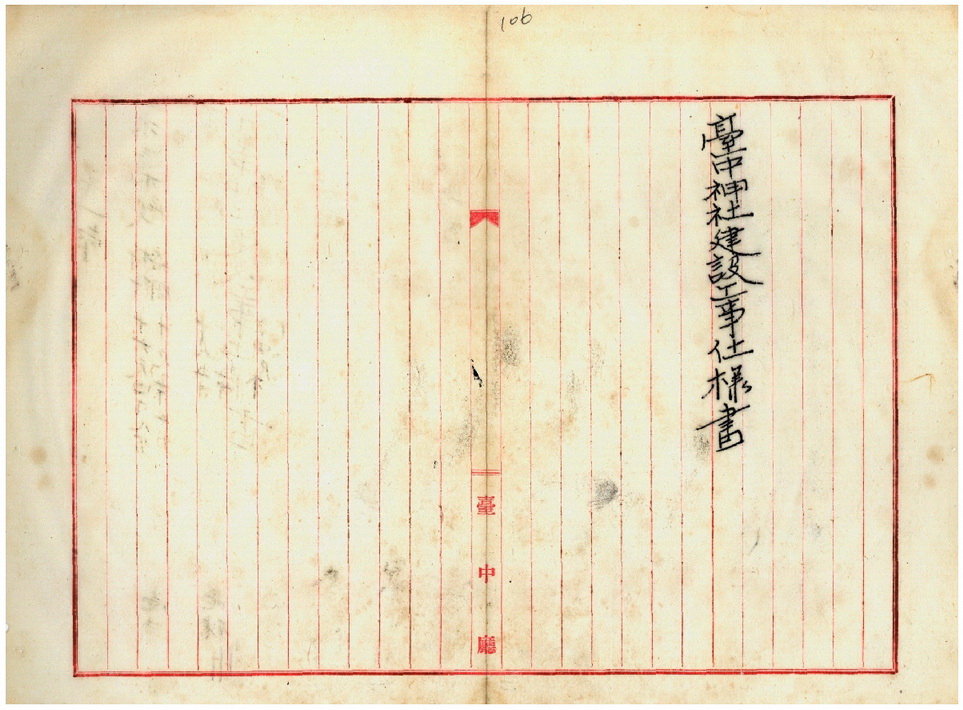 106
臺中神社建設工事仕様書
臺中廳